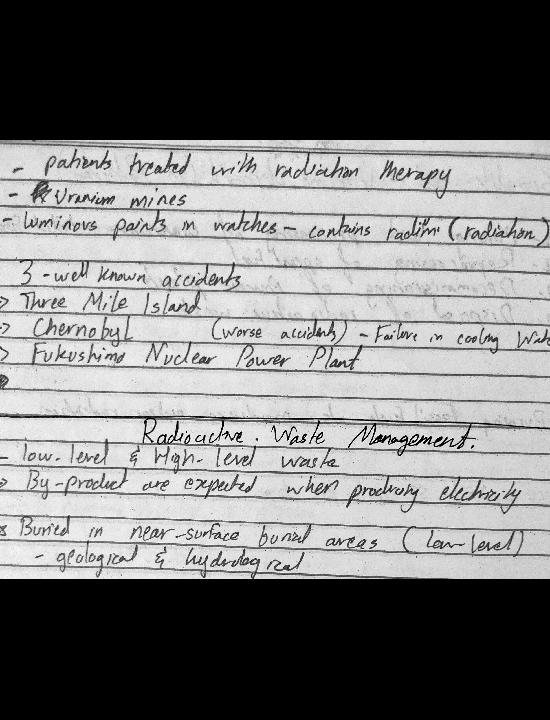 - patients treated with radiation therapy
- Uranium mines
- luminous paints in watches - contains radium (radiation)
3 - well known accidents
> Three Mile Island
> Chernobyl (worse accidents) - Failure in cooling Wat
> Fukushima Nuclear Power Plant
Radioactive Waste Management.
- low-level & High-level waste
> By-product are expected when producing electricity
* Buried in near-surface burial areas (low-level)
- geological & hydrological